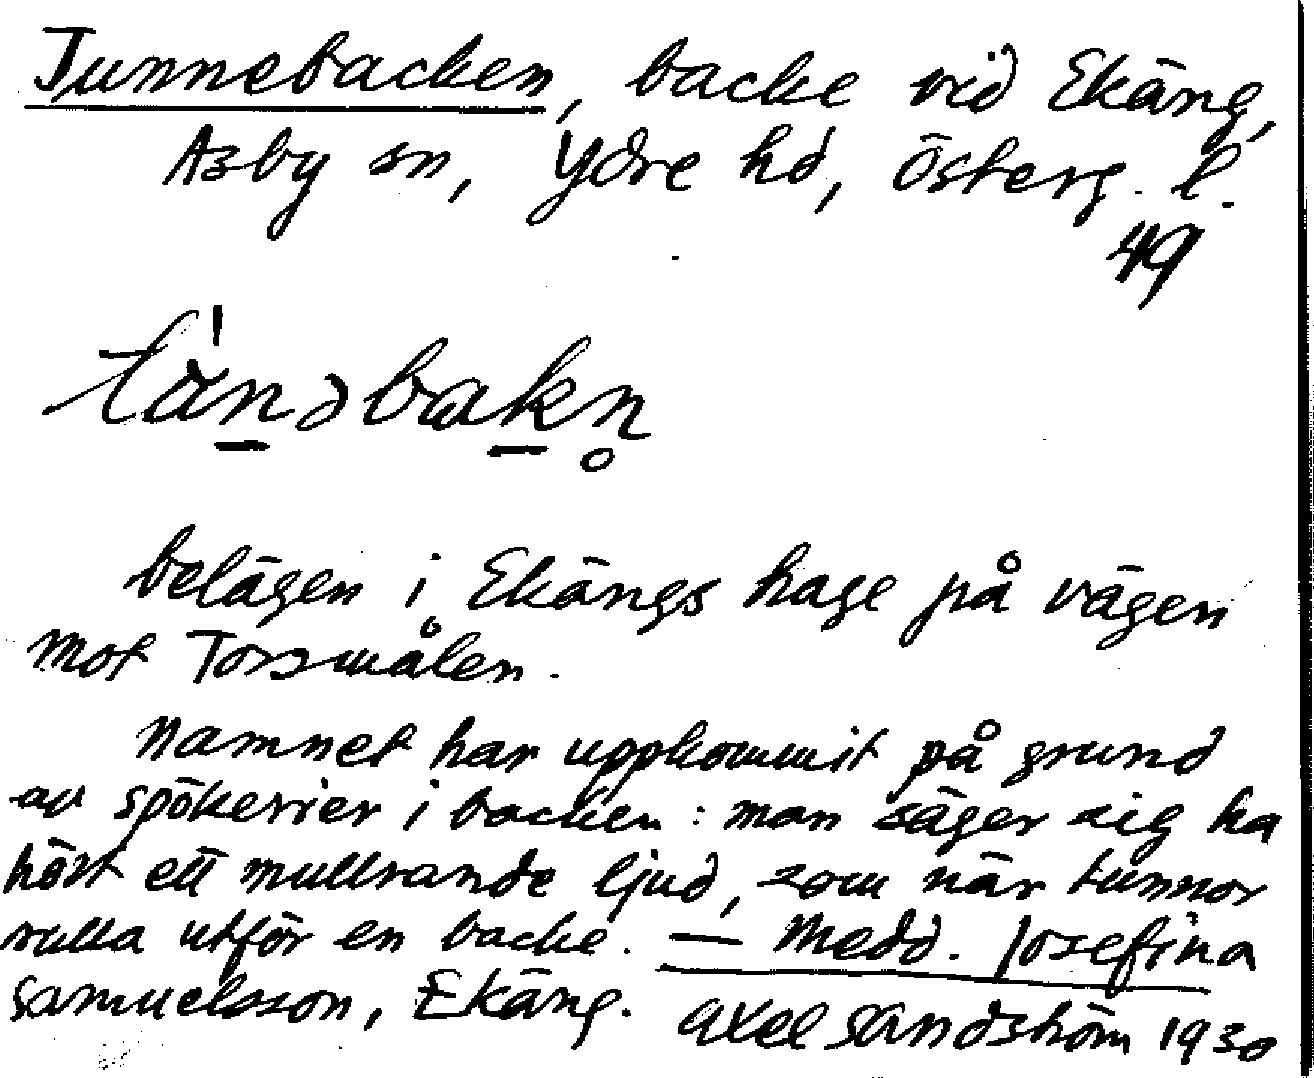 Tunnebacken, backe vid Ekäng,
Asby sn, Ydre hd, Österg. l.
49
tånəbakn̥
belägen i Ekängs hage på vägen
mot Torsmålen.
Namnet har uppkommit på grund
av spökerier i backen: man säger sig ha
hört ett mullrande ljud, som när tunnor
rulla utför en backe. — Medd. Josefina
Samuelsson, Ekäng. Axel Sandström 1930